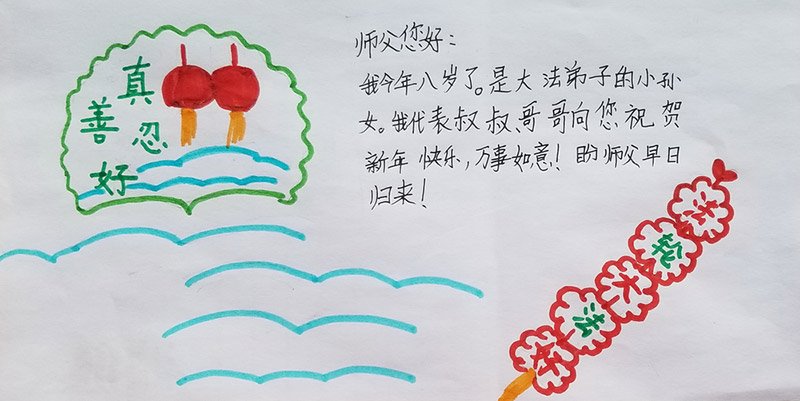 真
善
忍
好
师父您好：
我今年八岁了。是大法弟子的小孙
女。我代表叔叔、哥哥向您祝贺
新年快乐，万事如意！盼师父早日
归来！
法
轮
大
法
好